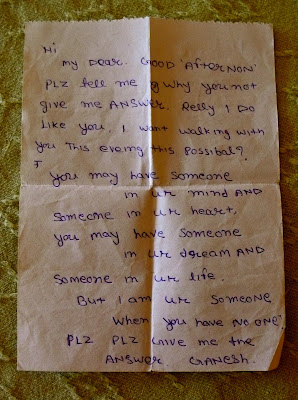 Hi
my Dear. GOOD 'AFTERNON'
PLZ tell me why you not
give me ANSWER. Relly I Do
Like you. I want walking with
you This eveing this Possibal?
You may have someone
in ur mind AND
Someone in ur heart,
you may have someone
in ur dream AND
Someone in ur life.
But I am ur someone
When you have NO ONE"
PLZ PLZ Give me the
ANSWER GANESH.